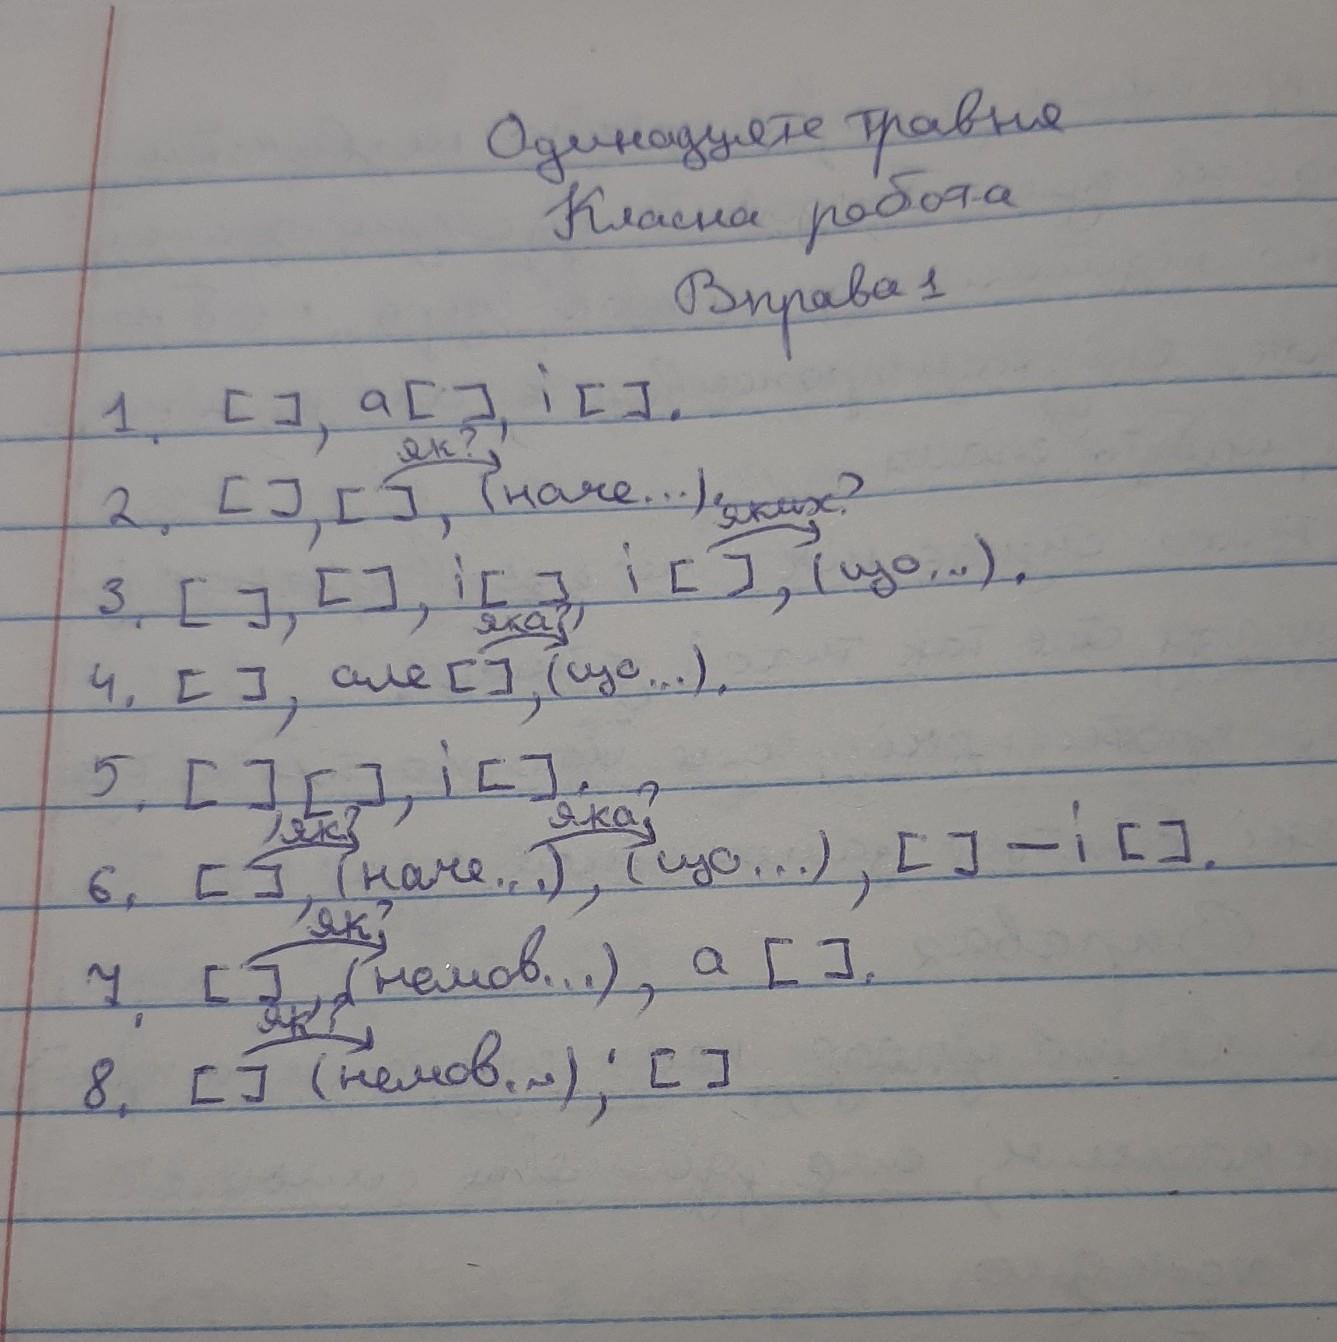 Одинадцяте травня
Класна робота
Вправа 1
1. [ ], а [ ], і [ ].
як?
2. [ ], [ ], (наче...).
яких?
3. [ ], [ ], і [ ], і [ ], (що...).
яка?
4. [ ], але [ ], (що...).
5. [ ], [ ], і [ ].
як? яка?
6. [ ], (наче...), (що...), [ ] – і [ ].
як?
7. [ ], (немов...), а [ ].
як?
8. [ ] (немов...); [ ]